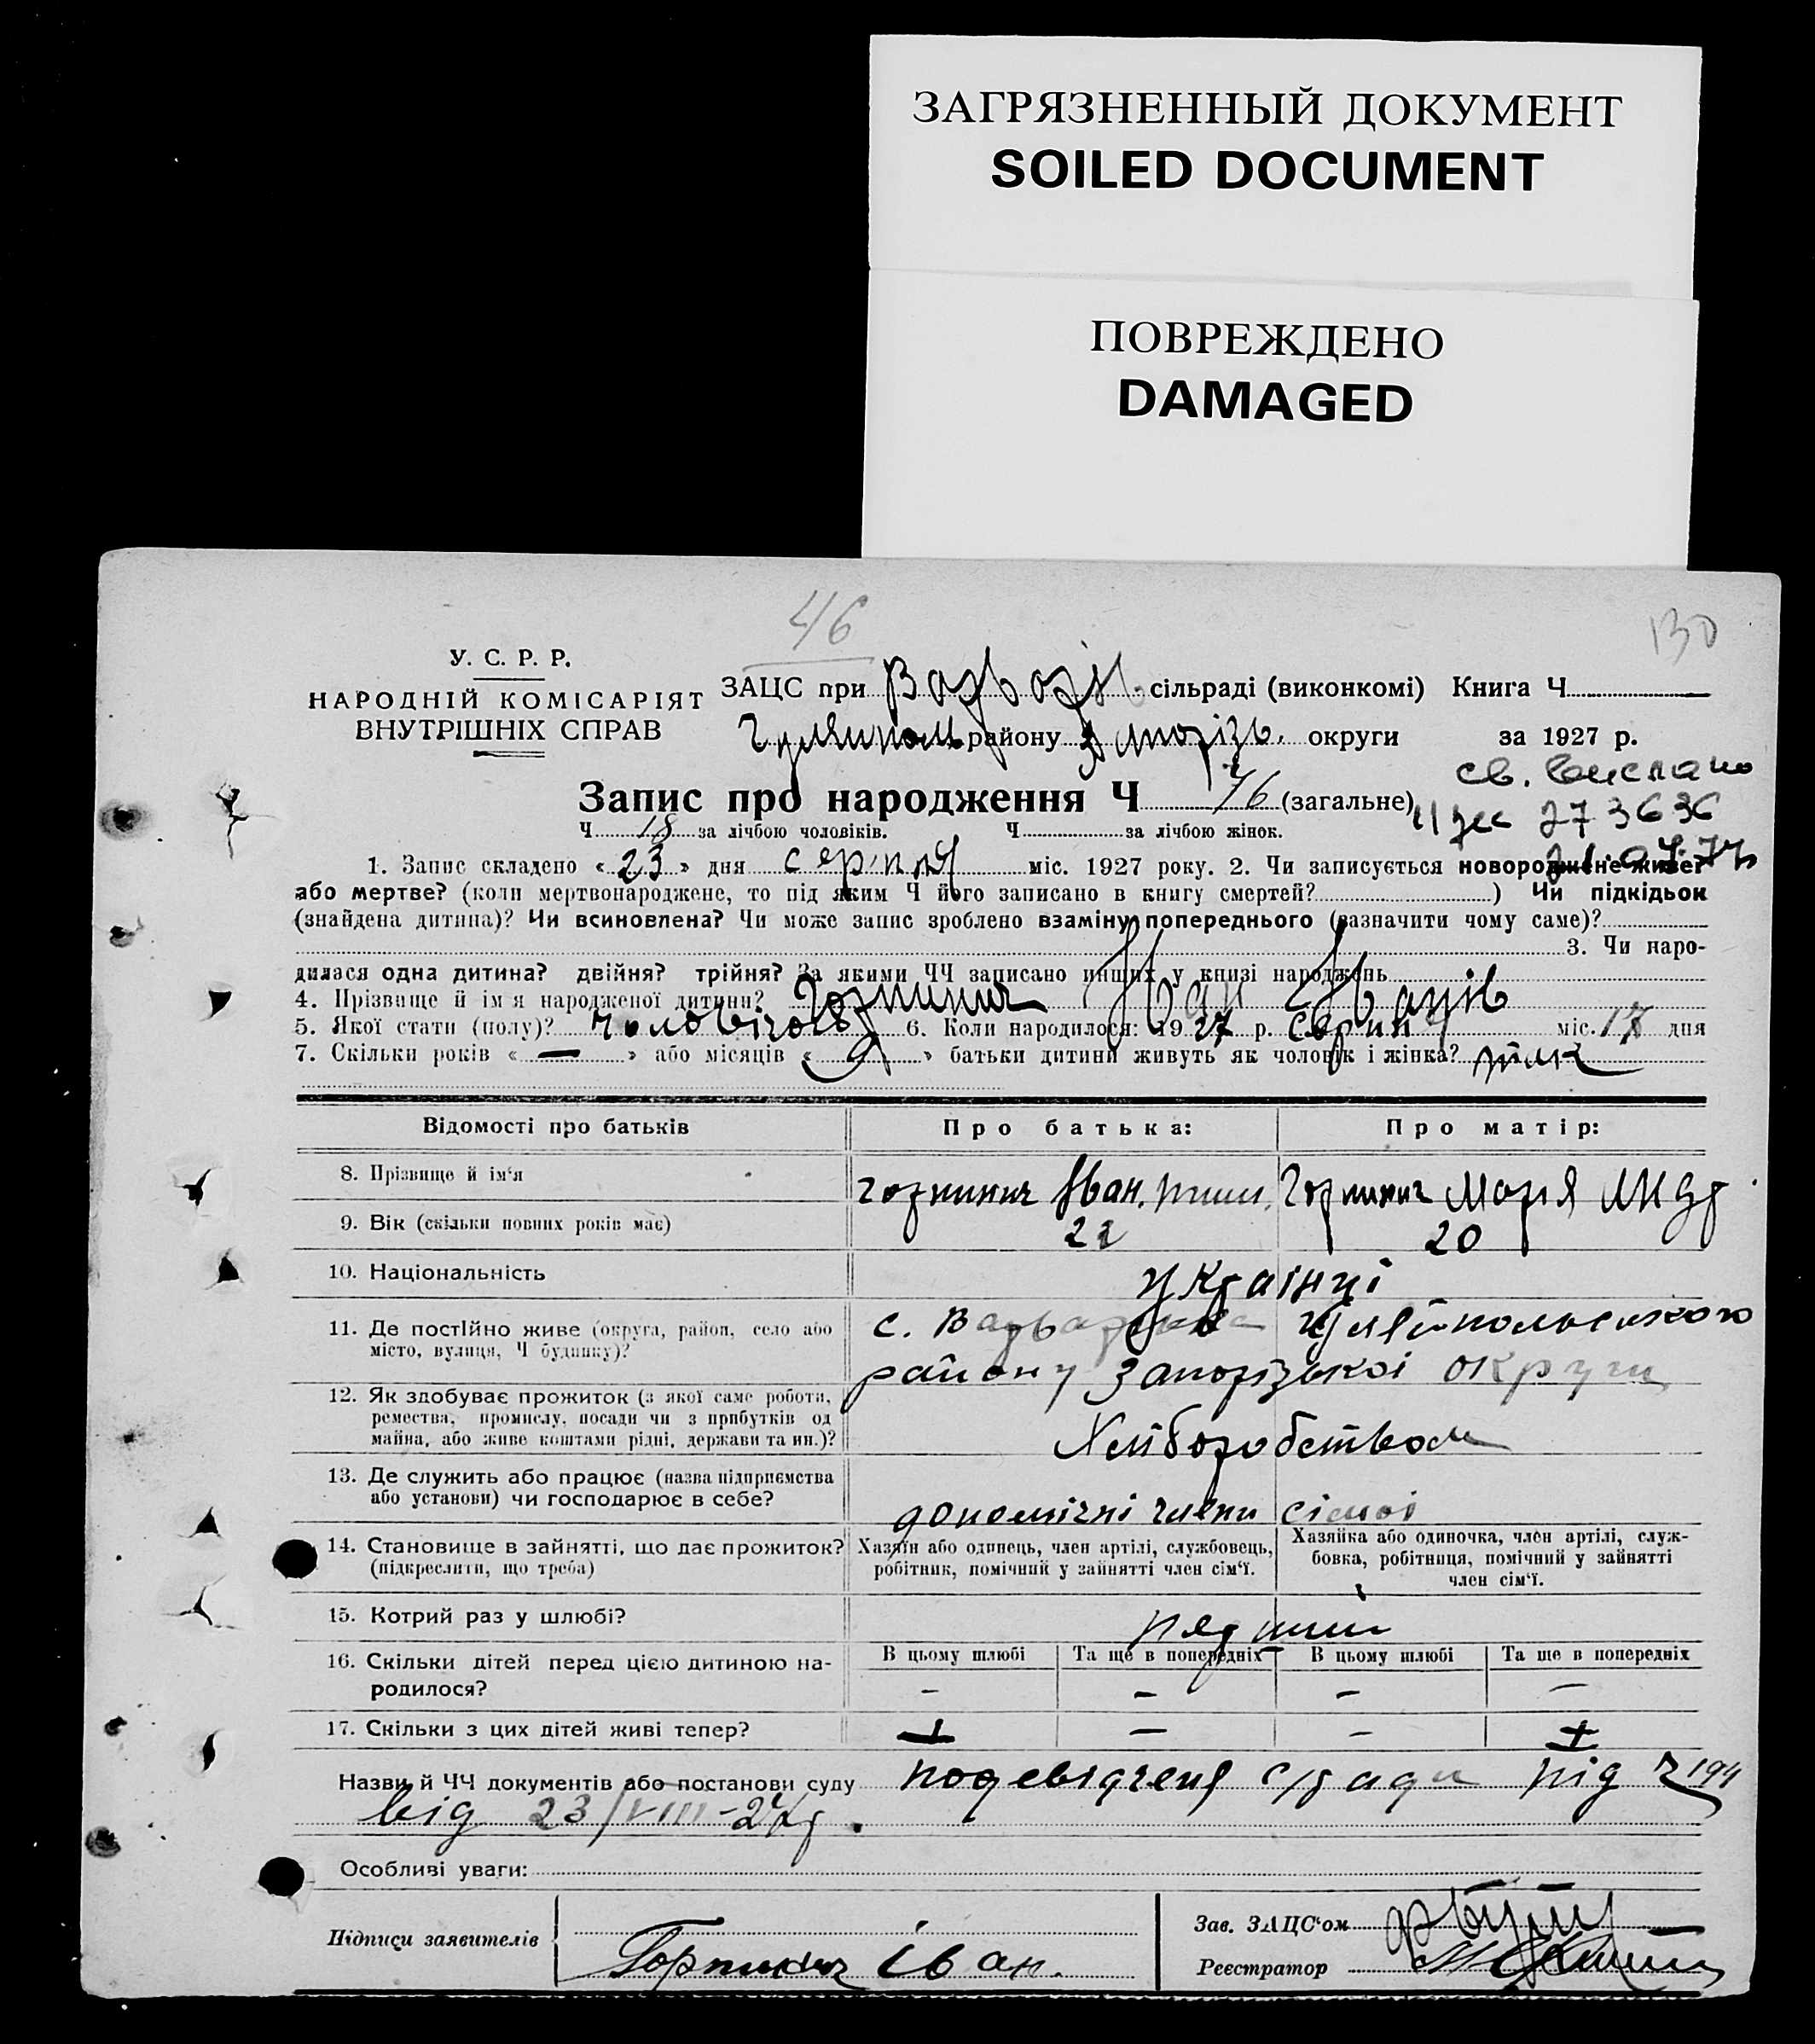 ЗАГРЯЗНЕННЫЙ ДОКУМЕНТ
SOILED DOCUMENT
ПОВРЕЖДЕНО
DAMAGED
46
130
У. С. Р. Р.
НАРОДНІЙ КОМІСАРІЯТ
ВНУТРІШНІХ СПРАВ
ЗАЦС при Варварів сільраді (виконкомі) Книга Ч
Гуляйполь району Запорізь. округи за 1927 р.
Запис про народження Ч 76 (загальне)
св. выслано
II УЕС 273636
21.04.77
Ч 18 за лічбою чоловіків. Ч за лічбою жінок.
1. Запис складено « 23 » дня серпня міс. 1927 року. 2. Чи записується новороджене живе?
або мертве? (коли мертвонароджене, то під яким Ч його записано в книгу смертей? ) Чи підкідьок
(знайдена дитина)? Чи всиновлена? Чи може запис зроблено взаміну попереднього (зазначити чому саме)?
3. Чи наро-
дилася одна дитина? двійня? трійня? За якими ЧЧ записано инших у книзі народжень
4. Прізвище й ім'я народженої дитини? Горпинич Іван Іванів
5. Якої стати (полу)? чоловічого 6. Коли народилося: 1927 р. серпня міс. 17 дня
7. Скільки років « — » або місяців « 9 » батьки дитини живуть як чоловік і жінка?
Відомості про батьків
Про батька:
Про матір:
8. Прізвище й ім'я горпинич Іван. Горпинич Марія
9. Вік (скільки повних років має) 22 20
10. Національність українці
11. Де постійно живе (округа, район, село або
місто, вулиця, Ч будинку)?
с. Варварівка Гуляйпольського
району Запорізької округи
12. Як здобуває прожиток (з якої саме роботи,
ремества, промислу, посади чи з прибутків од
майна, або живе коштами рідні, держави та ин.)?
Хліборобством
13. Де служить або працює (назва підприємства
або установи) чи господарює в себе?
допомічні члени сімої
14. Становище в зайнятті, що дає прожиток?
(підкреслити, що треба)
Хазяїн або одинець, член артілі, службовець,
робітник, помічний у зайнятті член сім'ї.
Хазяйка або одиночка, член артілі, служ-
бовка, робітниця, помічний у зайнятті
член сім'ї.
15. Котрий раз у шлюбі? первий
16. Скільки дітей перед цією дитиною на-
родилося?
В цьому шлюбі Та ще в попередніх В цьому шлюбі Та ще в попередніх
– – – –
17. Скільки з цих дітей живі тепер? – –
Назви й ЧЧ документів або постанови суду посвідченя с/ради під Ч 194
від 23/VIII-27р.
Особливі уваги:
Підписи заявителів
Горпинич Іван.
Зав. ЗАЦС'ом
Реєстратор